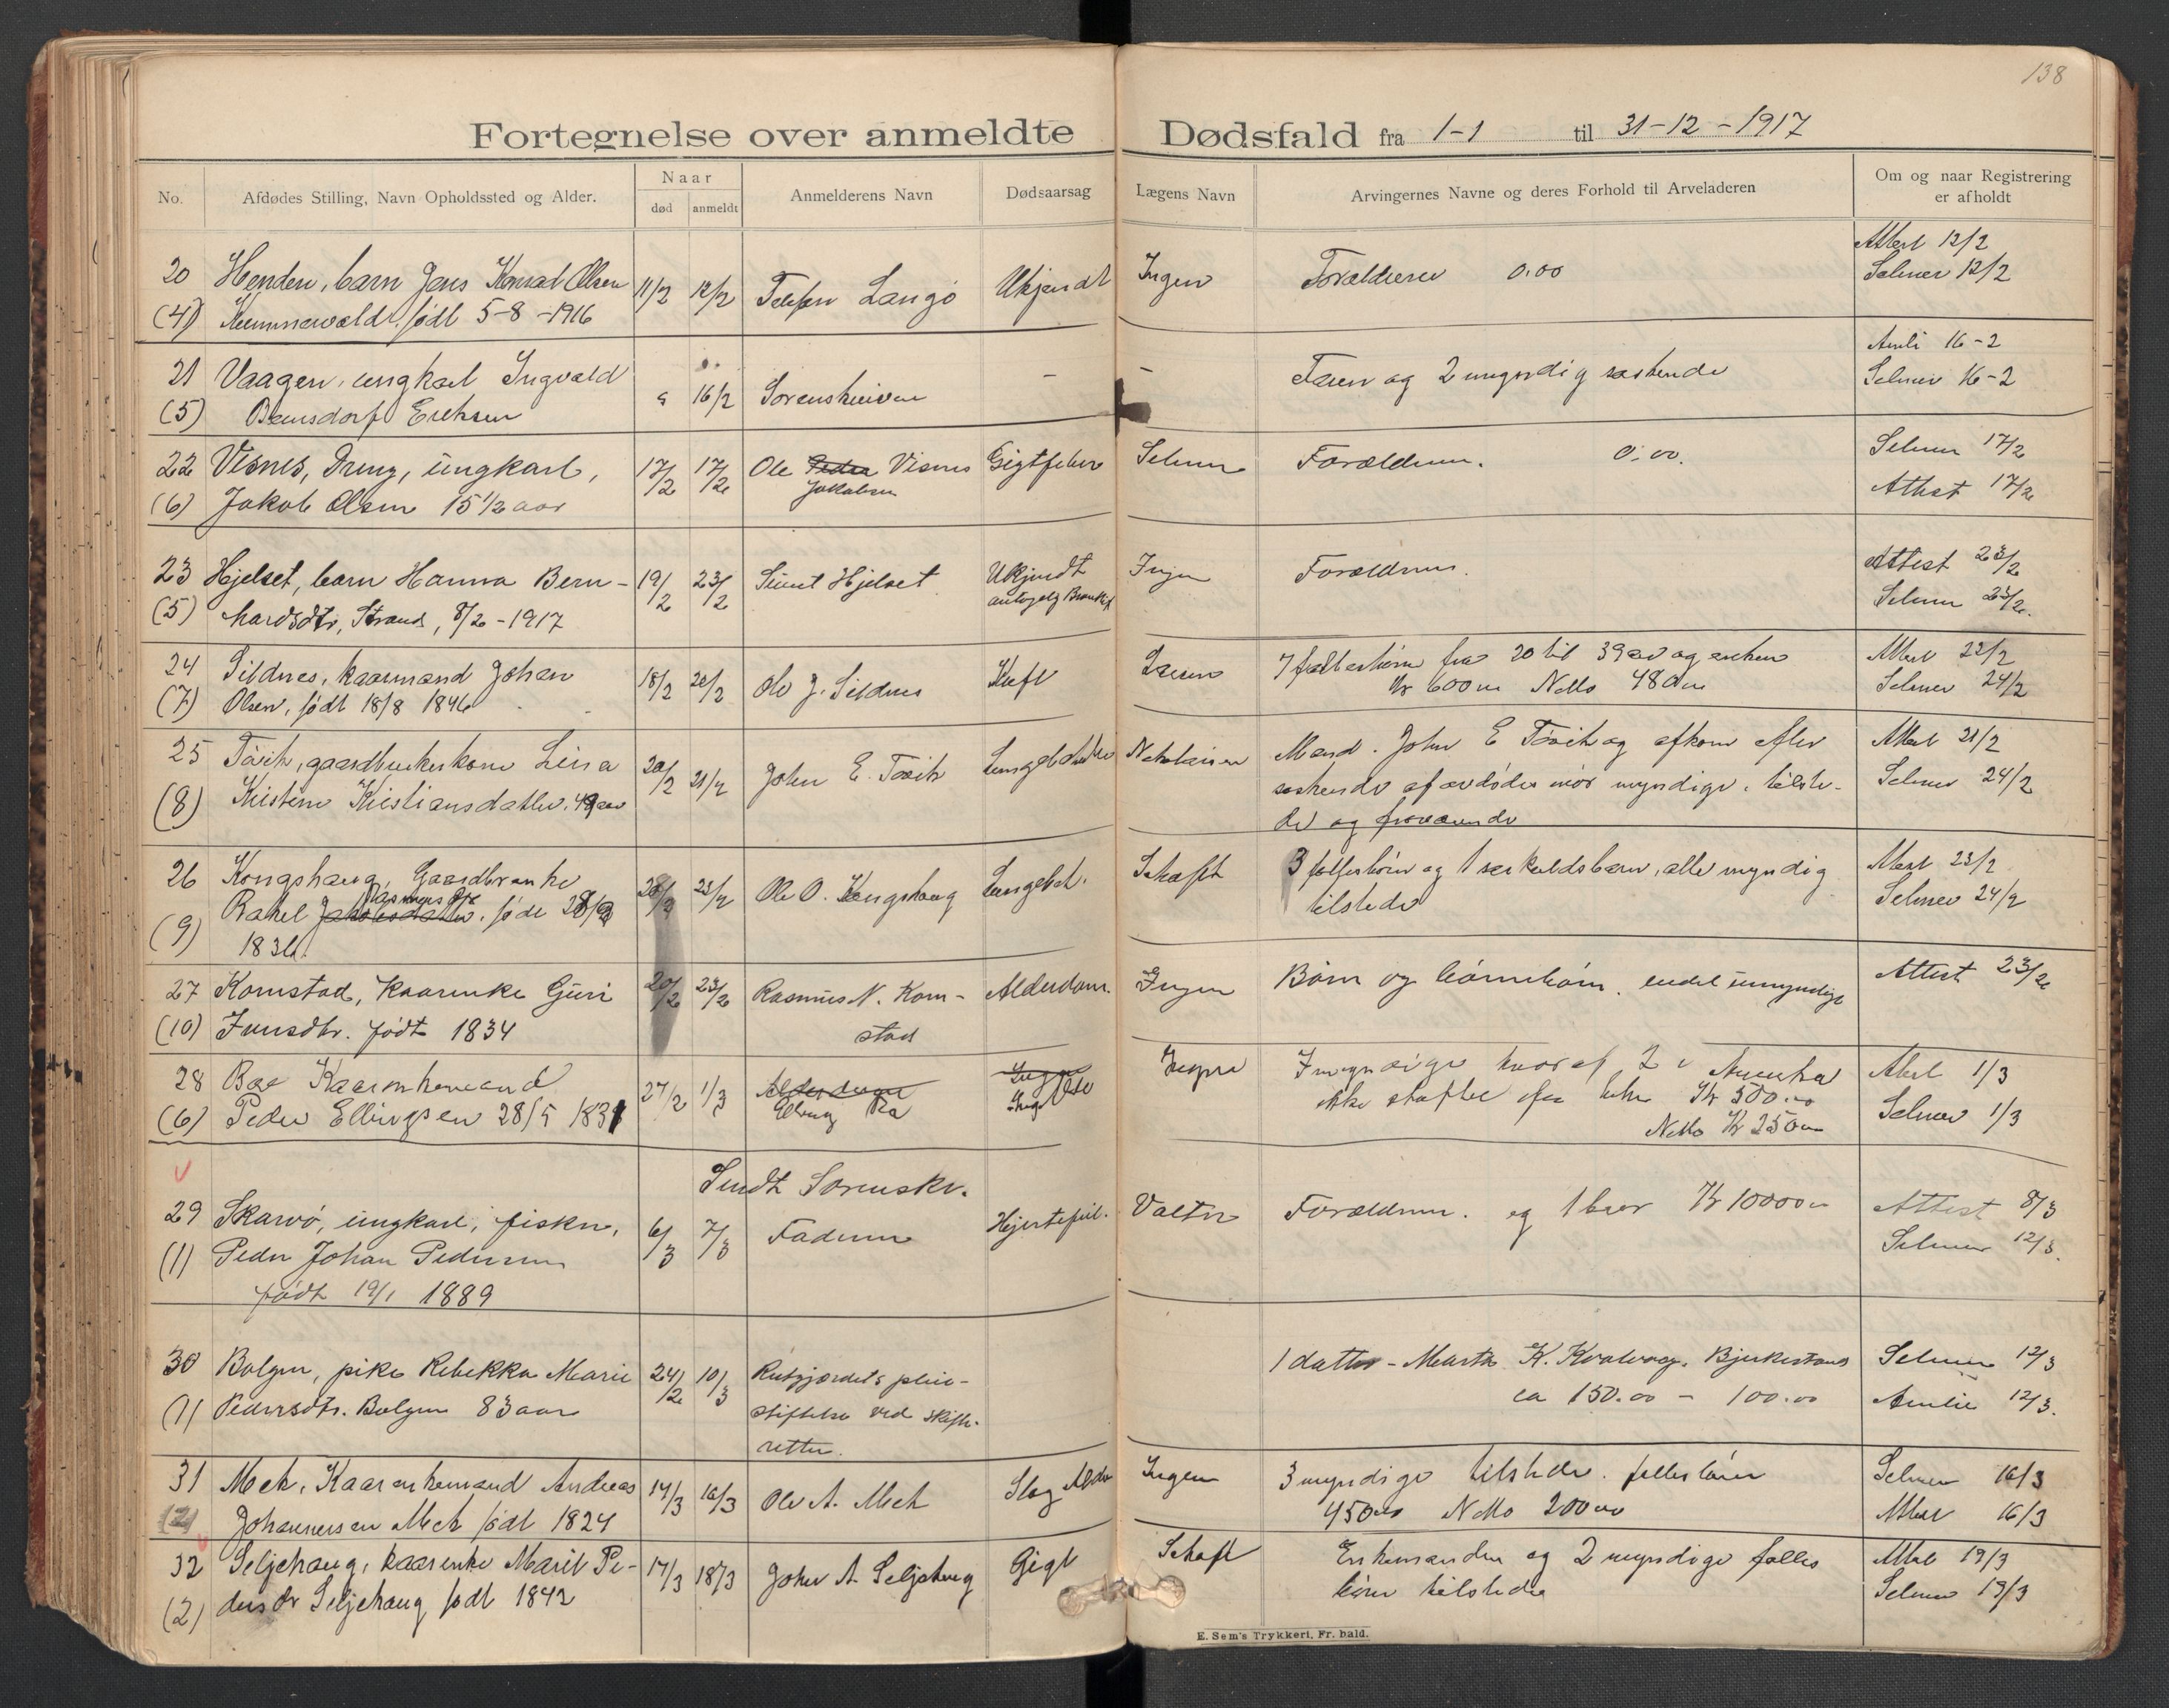 138
Fortegnelse over anmeldte Dødsfald fra 1-1 til 31-12-1917
No.
Afdødes Stilling, Navn Opholdssted og Alder.
Naar
død
anmeldt
Anmelderens Navn
Dødsaarsag
Lægens Navn
Arvingernes Navne og deres Forhold til Arveladeren
Om og naar Registrering
er afholdt
20 Henden, barn Jens Konrad Olsen 11/2 12/2 Langø Ukjendt Ingen Forældrene 0.00 Attest 12/2
(4) født 5-8-1916 Selmer 12/2
21 Vaagen, ungkarl Ingvald 16/2 Sorenskriveren - - Faren og 2 myndig søskende 16-2
(5) Ereksen Selmer 16-2
22 Visnes, Dreng, ungkarl, 17/2 17/2 Ole Peder Visnes Gigtfeber Selmer Forældrene. 0.00. Selmer 17/2
(6) Jakob Olsen 15 1/2 aar Jakobsen Attest 17/2
23 Hjelset, barn Hanna Bern- 19/2 23/2 Hjelset Ukjendt Ingen Forældrene. Attest 23/2
(5) hardsdtr, Strand, 8/2-1917 antagelig Selmer 23/2.
24 Sildnes, kaarmand Johan 18/2 20/2 Ole J. Sildnes 7 fællesbørn fra 20 til 39 aar og enken Attest 22/2
(7) Olsen, født 18/8 1846 Kr 600 00 Netto 480 00 Selmer 24/2
25 Tøvik, gaardbrukerkone Lina 20/2 21/2 John E. Tøvik Mand. John E Tøvik og afkom efter Attest 21/2
(8) Kristine Kristiansdatter. 49 aar søskende af avdødes mor myndige, tilste- Selmer 24/2
de og fraværende
26 Kongshaug, Gaardbr enke 20/2 23/2 Ole O. Kongshaug Lungebet. Schaft 3 fællesbørn og 1 særkuldsbarn, alle myndig Attest 23/2
Rasmusdtr
(9) Rakel Jakobsdatter. født 28/2 tilstede Selmer 24/2
1836.
27 Kornstad, Kaarenke Guri 20/2 23/2 Rasmus N. Korn- Alderdom. Ingen Børn og børnebørn. endel umyndige Attest 23/2
(10) Jensdtr. født 1834 stad
28 Bøe Kaarenkemand 27/2 1/3 Alderdom Ingen Ingen 3 myndige hvoraf 2 i Amerika Attest 1/3
(6) Peder Ellingsen 28/5 1831 ikke Kr 300.00 Selmer 1/3
Netto Kr 250 00
Sendt Sorenskr.
29 Skarvø, ungkarl, fisker, 6/3 7/3 Faderen Hjertefeil. Forældrene. og 1 bror Kr 1000 00 Attest 8/3
(1) Peder Johan Pedersen Selmer 12/3.
født 19/1 1889
30 Bolgen, pike Rebekka Marie 24/2 10/3 pleie- 1 datter - Marta K. Kvalvaag, Bjerkestrand Selmer 12/3
(1) Pedersdtr. Bolgen 83 aar stiftelse ved skifte- ca 150.00 - 100.00 12/3.
retten.
31 Mek, Kaarenkemand Andreas 14/3 16/3 Ole A. Mek Slag Ingen 3 myndige tilstede. fællesbørn Selmer 16/3
(12) Johannessen Mek født 1824 450 00 Netto 200 00 Attest 16/3
32 Seljehaug, kaarenke Marit Pe- 17/3 18/3 John A. Seljehaug Gigt Schaft Enkemanden og 2 myndige fælles Attest 19/3
(2) dersdtr Seljehaug født 1842 børn tilstede Selmer 19/3
E. Sem's Trykkeri, Fr.hald.